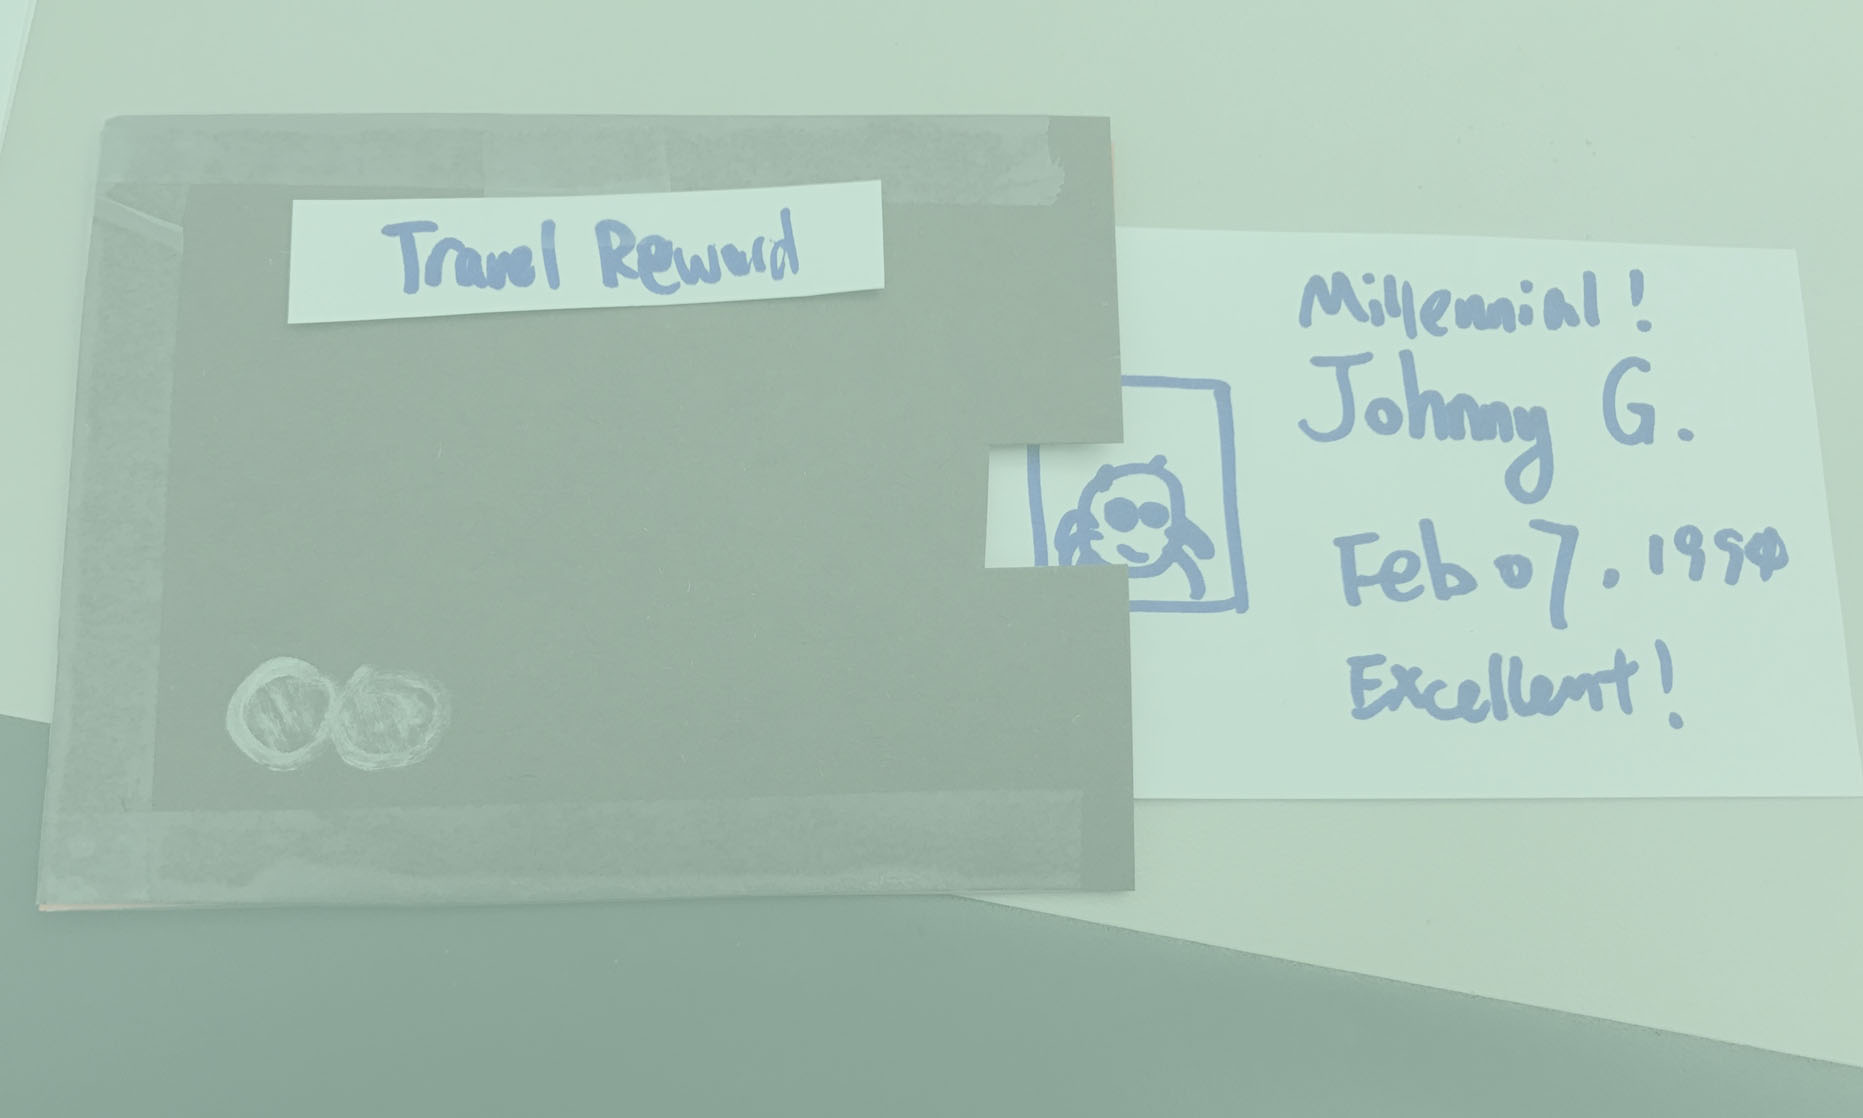 Travel Reward
Millennial!
Johnny G.
Feb 07. 1990
Excellent!